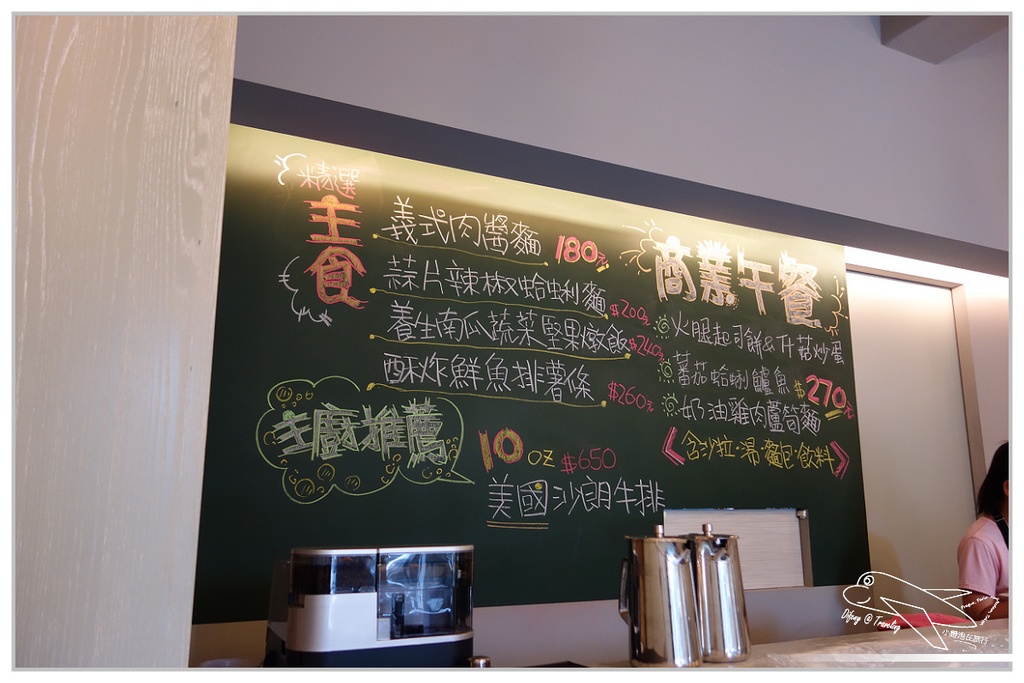 精選
主食
義式肉醬麵 180元
蒜片辣椒蛤蜊麵 $200元
養生南瓜蔬菜堅果燉飯 $240元
酥炸鮮魚排薯條 $260元
主廚推薦
10 oz $650
美國沙朗牛排
商業午餐
火腿起司餅&什菇炒蛋
蕃茄蛤蜊鱸魚 $270元
奶油雞肉蘆筍麵
《含沙拉·湯·麵包·飲料》
Difeny @ Traveling
小腳泡在旅行